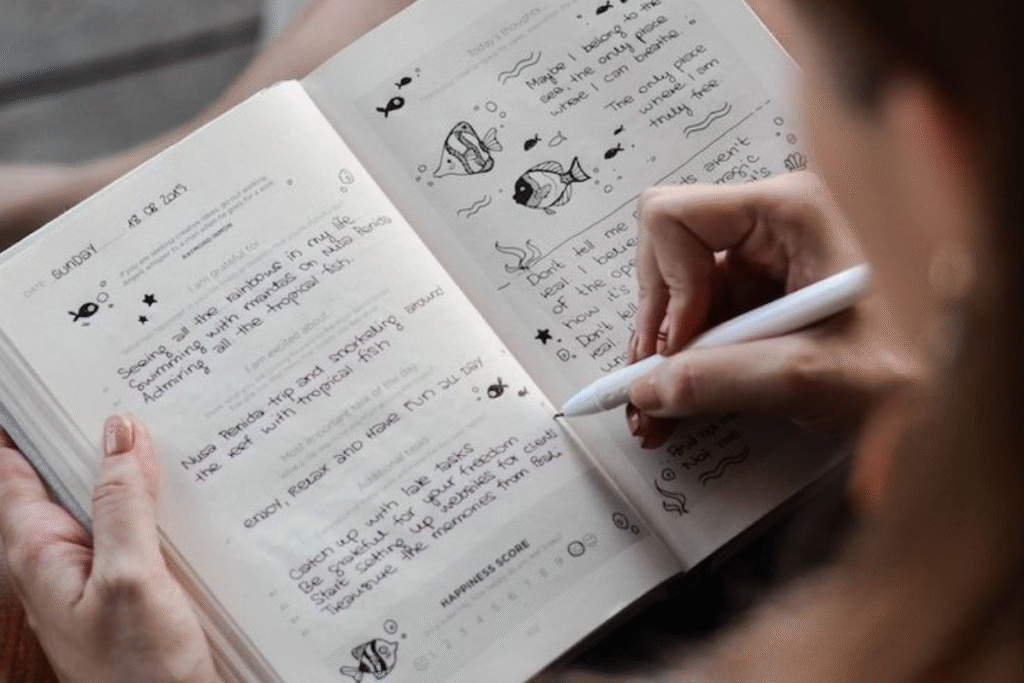 DATE SUNDAY 18 08 2019
If you are seeking creative ideas, go out walking.
Angels whisper to a man when he goes for a walk.
RAYMOND INMON
I am grateful for
Seeing all the rainbows in my life
Swimming with mantas on Nusa Penida
Admiring all the tropical fish.
I am excited about
Nusa Penida trip and snorkeling around
the reef with tropical fish
Most important task of the day
enjoy, relax and have fun all day
Additional tasks
Catch up with late tasks
Be grateful for your freedom
Start setting up websites for clients
Treasure the memories from Bali
HAPPINESS SCORE
1 2 3 4 5 6 7 8 9
Today's thoughts...
Maybe I belong to the
sea, the only place
where I can breathe.
The only place
where I am
truly free.
aren't
magic
Don't tell me
real. I believe
of the
how it's
Don't tell
real
Not me